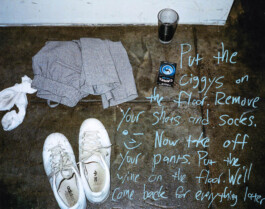 Put the
Ciggys on
the floor. Remove
Your shirts and socks.
Now take off
Your pants. Put the
wine on the floor. We'll
come back for everything later